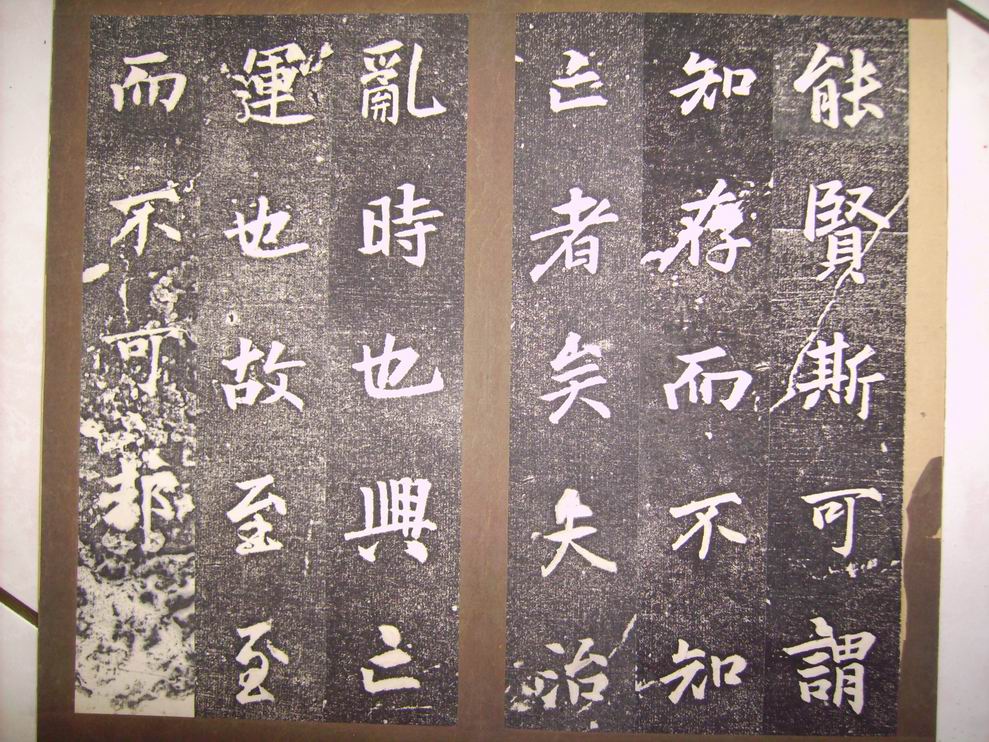 能賢斯可謂
知存而不知
亡者矣夫治
亂時也興亡
運也故至至
而不可郤